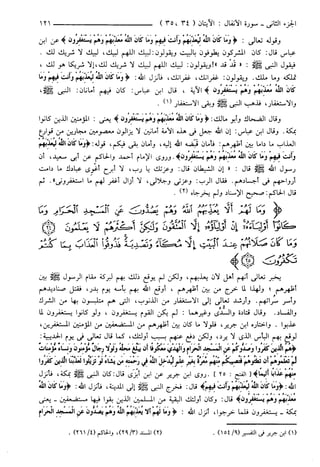 الجزء الثاني - سورة الأنفال : الآيتان ( ٣٤ ، ٣٥ ) ١٢١
وقوله تعالى : ﴿ وَمَا كَانَ اللَّهُ لِيُعَذِّبَهُمْ وَأَنتَ فِيهِمْ وَمَا كَانَ اللَّهُ مُعَذِّبَهُمْ وَهُمْ يَسْتَغْفِرُونَ ﴾ عن ابن
عباس قال: كان المشركون يطوفون بالبيت ويقولون: لبيك اللهم لبيك، لبيك لا شريك لك .
فيقول النبي ﷺ : « قد قد » !ويقولون: لبيك اللهم لبيك، لبيك لا شريك لك، إلا شريك هو لك ،
تملكه وما ملك. ويقولون: غفرانك، غفرانك، فأنزل الله: ﴿ وَمَا كَانَ اللَّهُ لِيُعَذِّبَهُمْ وَأَنتَ فِيهِمْ وَمَا
كَانَ اللَّهُ مُعَذِّبَهُمْ وَهُمْ يَسْتَغْفِرُونَ ﴾ الآية ، قال ابن عباس: كان فيهم أمانان: النبي ﷺ ،
والاستغفار، فذهب النبي ﷺ وبقي الاستغفار (١) .
وقال الضحاك وأبو مالك: ﴿ وَمَا كَانَ اللَّهُ مُعَذِّبَهُمْ وَهُمْ يَسْتَغْفِرُونَ ﴾ يعني : المؤمنين الذين كانوا
بمكة. وقال ابن عباس: إن الله جعل في هذه الأمة أمانين لا يزالون معصومين مجارين من قوارع
العذاب ما داما بين أظهرهم: فأمان قبضه الله إليه، وأمان بقي فيكم، قوله: ﴿ وَمَا كَانَ اللَّهُ لِيُعَذِّبَهُمْ
وَأَنتَ فِيهِمْ وَمَا كَانَ اللَّهُ مُعَذِّبَهُمْ وَهُمْ يَسْتَغْفِرُونَ ﴾ . وروى الإمام أحمد والحاكم عن أبي سعيد، أن
رسول الله ﷺ قال : « إن الشيطان قال: وعزتك يا رب، لا أبرح أغوي عبادك ما دامت
أرواحهم في أجسادهم. فقال الرب: وعزتي وجلالي، لا أزال أغفر لهم ما استغفروني» . ثم
قال الحاكم: صحيح الإسناد ولم يخرجاه (٢) .
﴿ وَمَا لَهُمْ أَلَّا يُعَذِّبَهُمُ اللَّهُ وَهُمْ يَصُدُّونَ عَنِ الْمَسْجِدِ الْحَرَامِ وَمَا
كَانُوا أَوْلِيَاءَهُ إِنْ أَوْلِيَاؤُهُ إِلَّا الْمُتَّقُونَ وَلَٰكِنَّ أَكْثَرَهُمْ لَا يَعْلَمُونَ
وَمَا كَانَ صَلَاتُهُمْ عِندَ الْبَيْتِ إِلَّا مُكَاءً وَتَصْدِيَةً فَذُوقُوا الْعَذَابَ بِمَا كُنتُمْ
تَكْفُرُونَ ﴾
يخبر تعالى أنهم أهل لأن يعذبهم، ولكن لم يوقع ذلك بهم لبركة مقام الرسول ﷺ بين
أظهرهم ! ولهذا لما خرج من بين أظهرهم ، أوقع الله بهم بأسه يوم بدر، فقتل صناديدهم
وأسر سراتهم. وأرشد تعالى إلى الاستغفار من الذنوب، التي هم متلبسون بها من الشرك
والفساد. وقال قتادة والسدي وغيرهما : لم يكن القوم يستغفرون ، ولو كانوا يستغفرون لما
عذبوا . واختاره ابن جرير، فلولا ما كان بين أظهرهم من المستضعفين من المؤمنين المستغفرين،
لوقع بهم البأس الذي لا يرد، ولكن دفع عنهم بسبب أولئك، كما قال تعالى في يوم الحديبية:
﴿ هُمُ الَّذِينَ كَفَرُوا وَصَدُّوكُمْ عَنِ الْمَسْجِدِ الْحَرَامِ وَالْهَدْيَ مَعْكُوفًا أَن يَبْلُغَ مَحِلَّهُ وَلَوْلَا رِجَالٌ مُّؤْمِنُونَ وَنِسَاءٌ مُّؤْمِنَاتٌ
لَّمْ تَعْلَمُوهُمْ أَن تَطَئُوهُمْ فَتُصِيبَكُم مِّنْهُم مَّعَرَّةٌ بِغَيْرِ عِلْمٍ لِّيُدْخِلَ اللَّهُ فِي رَحْمَتِهِ مَن يَشَاءُ لَوْ تَزَيَّلُوا لَعَذَّبْنَا الَّذِينَ كَفَرُوا
مِنْهُمْ عَذَابًا أَلِيمًا ﴾ [ الفتح : ٢٥ ] . روى ابن جرير عن ابن أبزى قال: كان النبي ﷺ بمكة، فأنزل
الله: ﴿ وَمَا كَانَ اللَّهُ لِيُعَذِّبَهُمْ وَأَنتَ فِيهِمْ ﴾ قال: فخرج النبي ﷺ إلى المدينة، فأنزل الله: ﴿ وَمَا كَانَ اللَّهُ
مُعَذِّبَهُمْ وَهُمْ يَسْتَغْفِرُونَ ﴾ قال: وكان أولئك البقية من المسلمين الذين بقوا فيها مستضعفين - يعني
بمكة - يستغفرون فلما خرجوا، أنزل الله : ﴿ وَمَا لَهُمْ أَلَّا يُعَذِّبَهُمُ اللَّهُ وَهُمْ يَصُدُّونَ عَنِ الْمَسْجِدِ الْحَرَامِ
(١) ابن جرير في التفسير (٩/ ١٥٤) . (٢) المسند (٢٩/٣)، والحاكم (٢٦١/٤) .